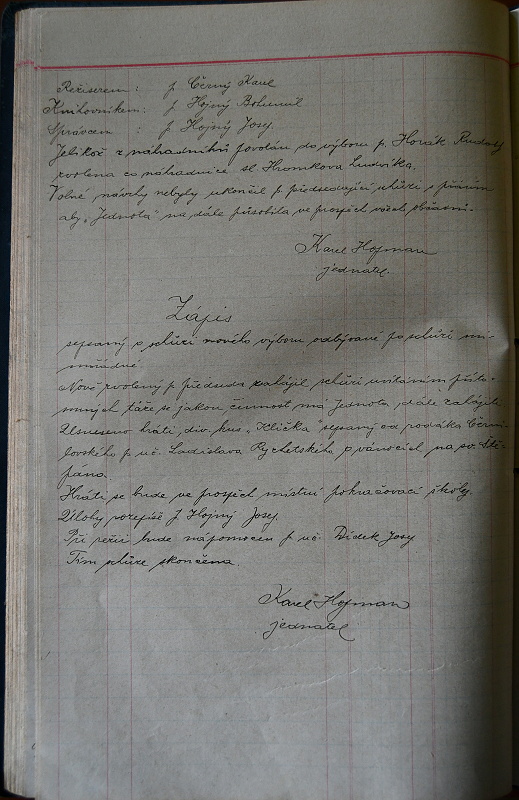 Režiserem : p. Černý Karel
Knihovníkem: p. Hojný Bohumil
Správcem : p. Hojný Josef
Jelikož z náhradníků povolán do výboru p. Horák Rudolf
zvolena co náhradnice sl. Hromkova Ludvika.
Volné návrhy nebyly ukončil p. předsedající schůzi s přáním
aby „Jednota" na dále působila ve prospěch všech
Karel Hofman
jednatel.
Zápis
sepsaný o schůzi nového výboru odbývané po schůzi mi-
mořádné.
Nově zvolený p. předseda zahájil schůzi uvítáním přító-
mných, táže se jakou činnost má Jednota dále zahájiti.
Usneseno hráti, div. kus „Klička" sepsaný od rodáka Černi-
lovského p. uč. Ladislava Rychetského o vánocích na sv. Ště-
pána.
Hráti se bude ve prospěch místní pokračovací školy.
Úlohy rozepíše p. Hojný Josef.
Při režii bude nápomocen p. uč. Dídek Josef
Tím schůze skončena.
Karel Hofman
jednatel